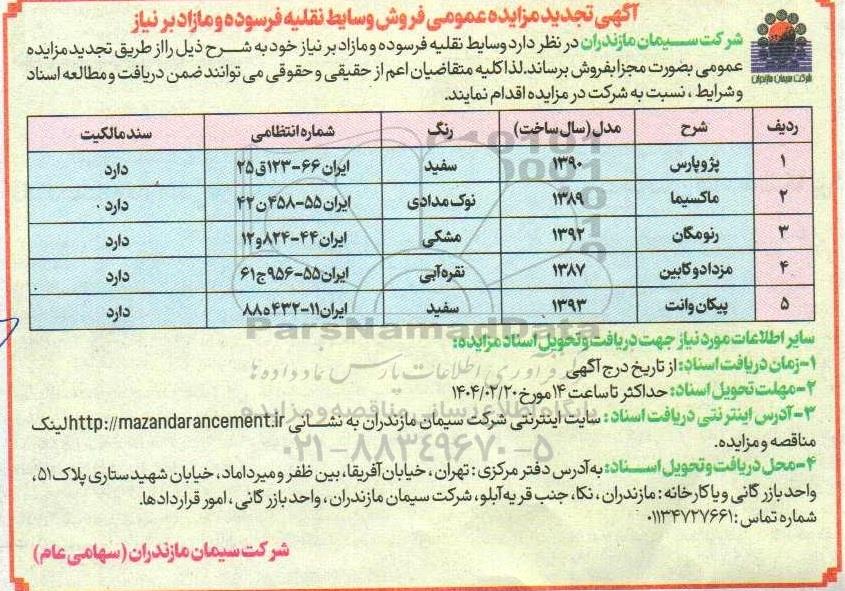 آگهی تجدید مزایده عمومی فروش وسایط نقلیه فرسوده و مازاد بر نیاز
شرکت سیمان مازندران در نظر دارد وسایط نقلیه فرسوده و مازاد بر نیاز خود به شرح ذیل را از طریق تجدید مزایده
عمومی بصورت مجزا بفروش برساند. لذا کلیه متقاضیان اعم از حقیقی و حقوقی می توانند ضمن دریافت و مطالعه اسناد
و شرایط ، نسبت به شرکت در مزایده اقدام نمایند.
شرکت سیمان مازندران
ردیف شرح مدل (سال ساخت) رنگ شماره انتظامی سند مالکیت
۱ پژو پارس ۱۳۹۰ سفید ایران ۶۶-۱۲۳ق۲۵ دارد
۲ ماکسیما ۱۳۸۹ نوک مدادی ایران ۵۵-۴۵۸ن۴۲ دارد
۳ رنو مگان ۱۳۹۲ مشکی ایران ۴۴-۸۲۴و۱۲ دارد
۴ مزدا دو کابین ۱۳۸۷ نقره آبی ایران ۵۵-۹۵۶ج۶۱ دارد
۵ پیکان وانت ۱۳۹۳ سفید ایران ۱۱-۴۳۲ه۸۸ دارد
ParsNamadData
سایر اطلاعات مورد نیاز جهت دریافت و تحویل اسناد مزایده:
۱-زمان دریافت اسناد: از تاریخ درج آگهی
گردآوری اطلاعات پارس نماد داده ها
۲-مهلت تحویل اسناد: حداکثر تا ساعت ۱۴ مورخ ۱۴۰۴/۰۲/۲۰
پایگاه اطلاع رسانی مناقصه و مزایده
۳-آدرس اینترنتی دریافت اسناد : سایت اینترنتی شرکت سیمان مازندران به نشانی http://mazandarancement.ir لینک
مناقصه و مزایده.
۰۲۱-۸۸۳۴۹۶۷۰-۵
۴-محل دریافت و تحویل اسناد: به آدرس دفتر مرکزی : تهران ، خیابان آفریقا، بین ظفر و میرداماد، خیابان شهید ستاری پلاک ۵۱،
واحد بازرگانی و یا کارخانه : مازندران ، نکا، جنب قریه آبلو، شرکت سیمان مازندران ، واحد بازرگانی ، امور قراردادها.
شماره تماس : ۰۱۱۳۴۷۲۷۶۶۱
شرکت سیمان مازندران (سهامی عام)